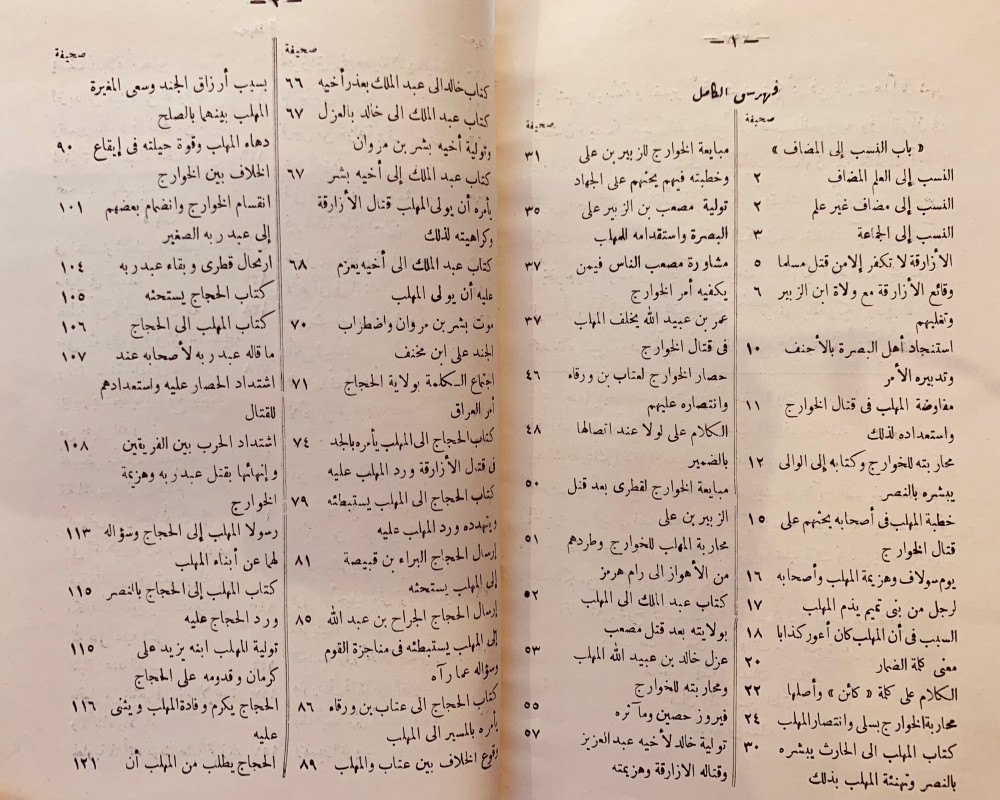 — ١ —
فهرس الكامل
صحيفة
« باب النسب إلى المضاف »
النسب إلى العلم المضاف ٢
النسب إلى مضاف غير علم ٢
النسب إلى الجماعة ٣
الأزارقة لا تكفر إلا من قتل مسلما ٥
وقائع الأزارقة مع ولاة ابن الزبير ٦
وتغلبهم
استنجاد أهل البصرة بالأحنف ١٠
وتدبيره الأمر
مفاوضة المهلب فى قتال الخوارج ١١
واستعداده لذلك
محاربته للخوارج وكتابه إلى الوالى ١٢
يبشره بالنصر
خطبة المهلب فى أصحابه يحثهم على ١٥
قتال الخوارج
يوم سولاف وهزيمة المهلب وأصحابه ١٦
لرجل من بنى تميم يذم المهلب ١٧
السبب فى أن المهلب كان أعور كذابا ١٨
معنى كلمة الضمار ٢٠
الكلام على كلمة « كائن » وأصلها ٢٢
محاربة الخوارج بسلى وانتصار المهلب ٢٤
كتاب المهلب الى الحارث يبشره ٣٠
بالنصر وتهنئة المهلب بذلك
صحيفة
مبايعة الخوارج للزبير بن على ٣١
وخطبته فيهم يحثهم على الجهاد
تولية مصعب بن الزبير على ٣٥
البصرة واستقدامه للمهلب
مشاورة مصعب الناس فيمن ٣٧
يكفيه أمر الخوارج
عمر بن عبيد الله يخلف المهلب ٣٧
فى قتال الخوارج
حصار الخوارج لعتاب بن ورقاء ٤٦
وانتصاره عليهم
الكلام على لولا عند اتصالها ٤٨
بالضمير
مبايعة الخوارج لقطرى بعد قتل ٥٠
الزبير بن على
محاربة المهلب للخوارج وطردهم ٥١
من الأهواز الى رام هرمز
كتاب عبد الملك الى المهلب ٥٢
بولايته بعد قتل مصعب
عزل خالد بن عبيد الله المهلب ٥٣
ومحاربته للخوارج
فيروز حصين ومآثره ٥٥
تولية خالد لأخيه عبد العزيز ٥٧
وقتاله الازارقة وهزيمته
— ٢ —
صحيفة
كتاب خالد الى عبد الملك بعذر أخيه ٦٦
كتاب عبد الملك الى خالد بالعزل ٦٧
وتولية أخيه بشر بن مروان
كتاب عبد الملك إلى أخيه بشر ٦٧
يأمره أن يولى المهلب قتال الأزارقة
وكراهيته لذلك
كتاب عبد الملك الى أخيه يعزم ٦٨
عليه أن يولى المهلب
موت بشر بن مروان واضطراب ٧٠
الجند على ابن مخنف
اجتماع الكلمة بولاية الحجاج ٧١
أمر العراق
كتاب الحجاج الى المهلب يأمره بالجد ٧٤
فى قتال الأزارقة ورد المهلب عليه
كتاب الحجاج الى المهلب يستبطئه ٧٩
ويتهدده ورد المهلب عليه
إرسال الحجاج البراء بن قبيصة ٨١
إلى المهلب يستحثه
إرسال الحجاج الجراح بن عبد الله ٨٥
إلى المهلب يستبطئه فى مناجزة القوم
وسؤاله عما رآه
كتاب الحجاج الى عتاب بن ورقاء ٨٦
يأمره بالمسير الى المهلب
وقوع الخلاف بين عتاب والمهلب ٨٩
صحيفة
بسبب أرزاق الجند وسعى المغيرة
المهلب بينهما بالصلح
دهاء المهلب وقوة حيلته فى إيقاع ٩٠
الخلاف بين الخوارج
انقسام الخوارج وانضمام بعضهم ١٠١
إلى عبد ربه الصغير
ارتحال قطرى وبقاء عبد ربه ١٠٤
كتاب الحجاج يستحثه ١٠٥
كتاب المهلب الى الحجاج ١٠٦
ما قاله عبد ربه لأصحابه عند ١٠٧
اشتداد الحصار عليه واستعدادهم
للقتال
اشتداد الحرب بين الفريقين ١٠٨
وإنهائها بقتل عبد ربه وهزيمة
الخوارج
رسولا المهلب إلى الحجاج وسؤاله ١١٣
لهما عن أبناء المهلب
كتاب المهلب إلى الحجاج بالنصر ١١٥
ورد الحجاج عليه
تولية المهلب ابنه يزيد على ١١٥
كرمان وقدومه على الحجاج
الحجاج يكرم وفادة المهلب ويثنى ١١٦
عليه
الحجاج يطلب من المهلب أن ١٢١